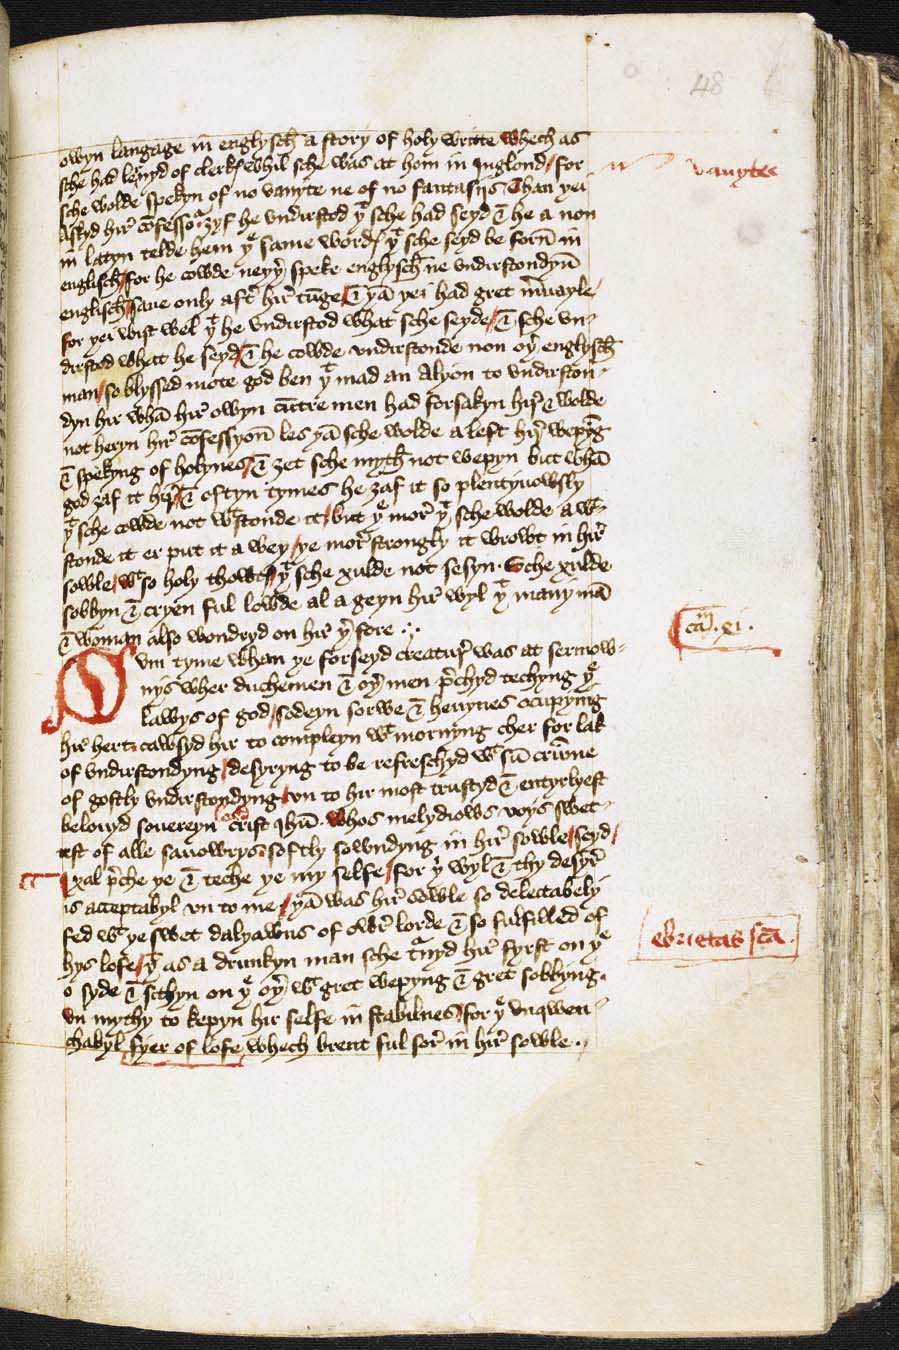 48
owyn langage in englysch a story of holy writte whech as
sche had lernyd of clerkꝭ whil sche was at hom in Inglond / for
vanytee
sche wolde spekyn of no vanyte ne of no fantasijs Than þei
Askyd hir cōfessoꝛ ȝyf he vndirstod þͭ sche had seyd & he a non
in latyn telde hem þͤ same wordꝭ þͭ sche seyd be forn̄ in
englisch / for he cowde neyþ̄ speke englysch ne vndirstondyn̄
englisch / saue only aft̄ hir tūge / & þā þei had gret m̄uayle /
for þei wist wel þͭ he vndirstod what sche seyde / & sche vn-
dirstod what he seyd / & he cowde vndirstonde non oþ̄ englysch
man / so blyssed mote god ben þͭ mad an Alyon to vndirston-
dyn hir whā hir owyn cūtre men had forsakyn hir & wolde
not heryn hir cōfessyon̄ les þā sche wolde a left hir wepyng
& spekyng of holynes / & ȝet sche myth not wepyn but whā
god ȝaf it hir / & oftyn tymes he ȝaf it so plentyuowsly
þͭ sche cowde not wͭstonde it / but þͤ mor þͭ sche wolde a wͭ-
stonde it er put it a wey / þe mor strongly it wrowt in hir
sowle / wͭ so holy thowtꝭ / þͭ sche xulde not sesyn. Sche xulde
sobbyn & cryen ful lowde al a geyn hir wyl þͭ many mā
& woman also wondryd on hir þ̄ fore .
Cam̄ . xi .
On tyme whan þe forseyd creatur was at sermow-
nys wher duchemen & oþ̄ men p̄chyd techyng þͤ
lawys of god / sodeyn sorwe & heuynes ocupyīg
hir hert. cawsyd hir to compleyn wͭ mornyng cher for lak
of vndirstondyng / desyryng to be refreschyd wͭ sū crūme
of gostly vndirstondyng / vn to hir most trustyd & entyrlyest
belouyd souereyn crist ihū. whos melydiows voys swet-
test of alle sauowrys. softly sowndyng in hir sowle / seyd /
I xal p̄che þe & teche þe my selfe / for þͥ wyl & thy desyr
is acceptabyl vn to me / þā was hir sowle so delectabely
fed wͭ þe swet dalyawns of owr lorde & so fulfilled of
ebrietas sc̄a .
hys lofe / þͭ as a drunkyn man sche tͬnyd hir fyrst on þͤ
o syde & sithyn on þͤ oþ̄ wͭ gret wepyng & gret sobbyng.
vn mythy to kepyn hir selfe in stabilnes / for þͤ vnqwen-
chabyl fyer of lofe whech brent ful sor in hir sowle .